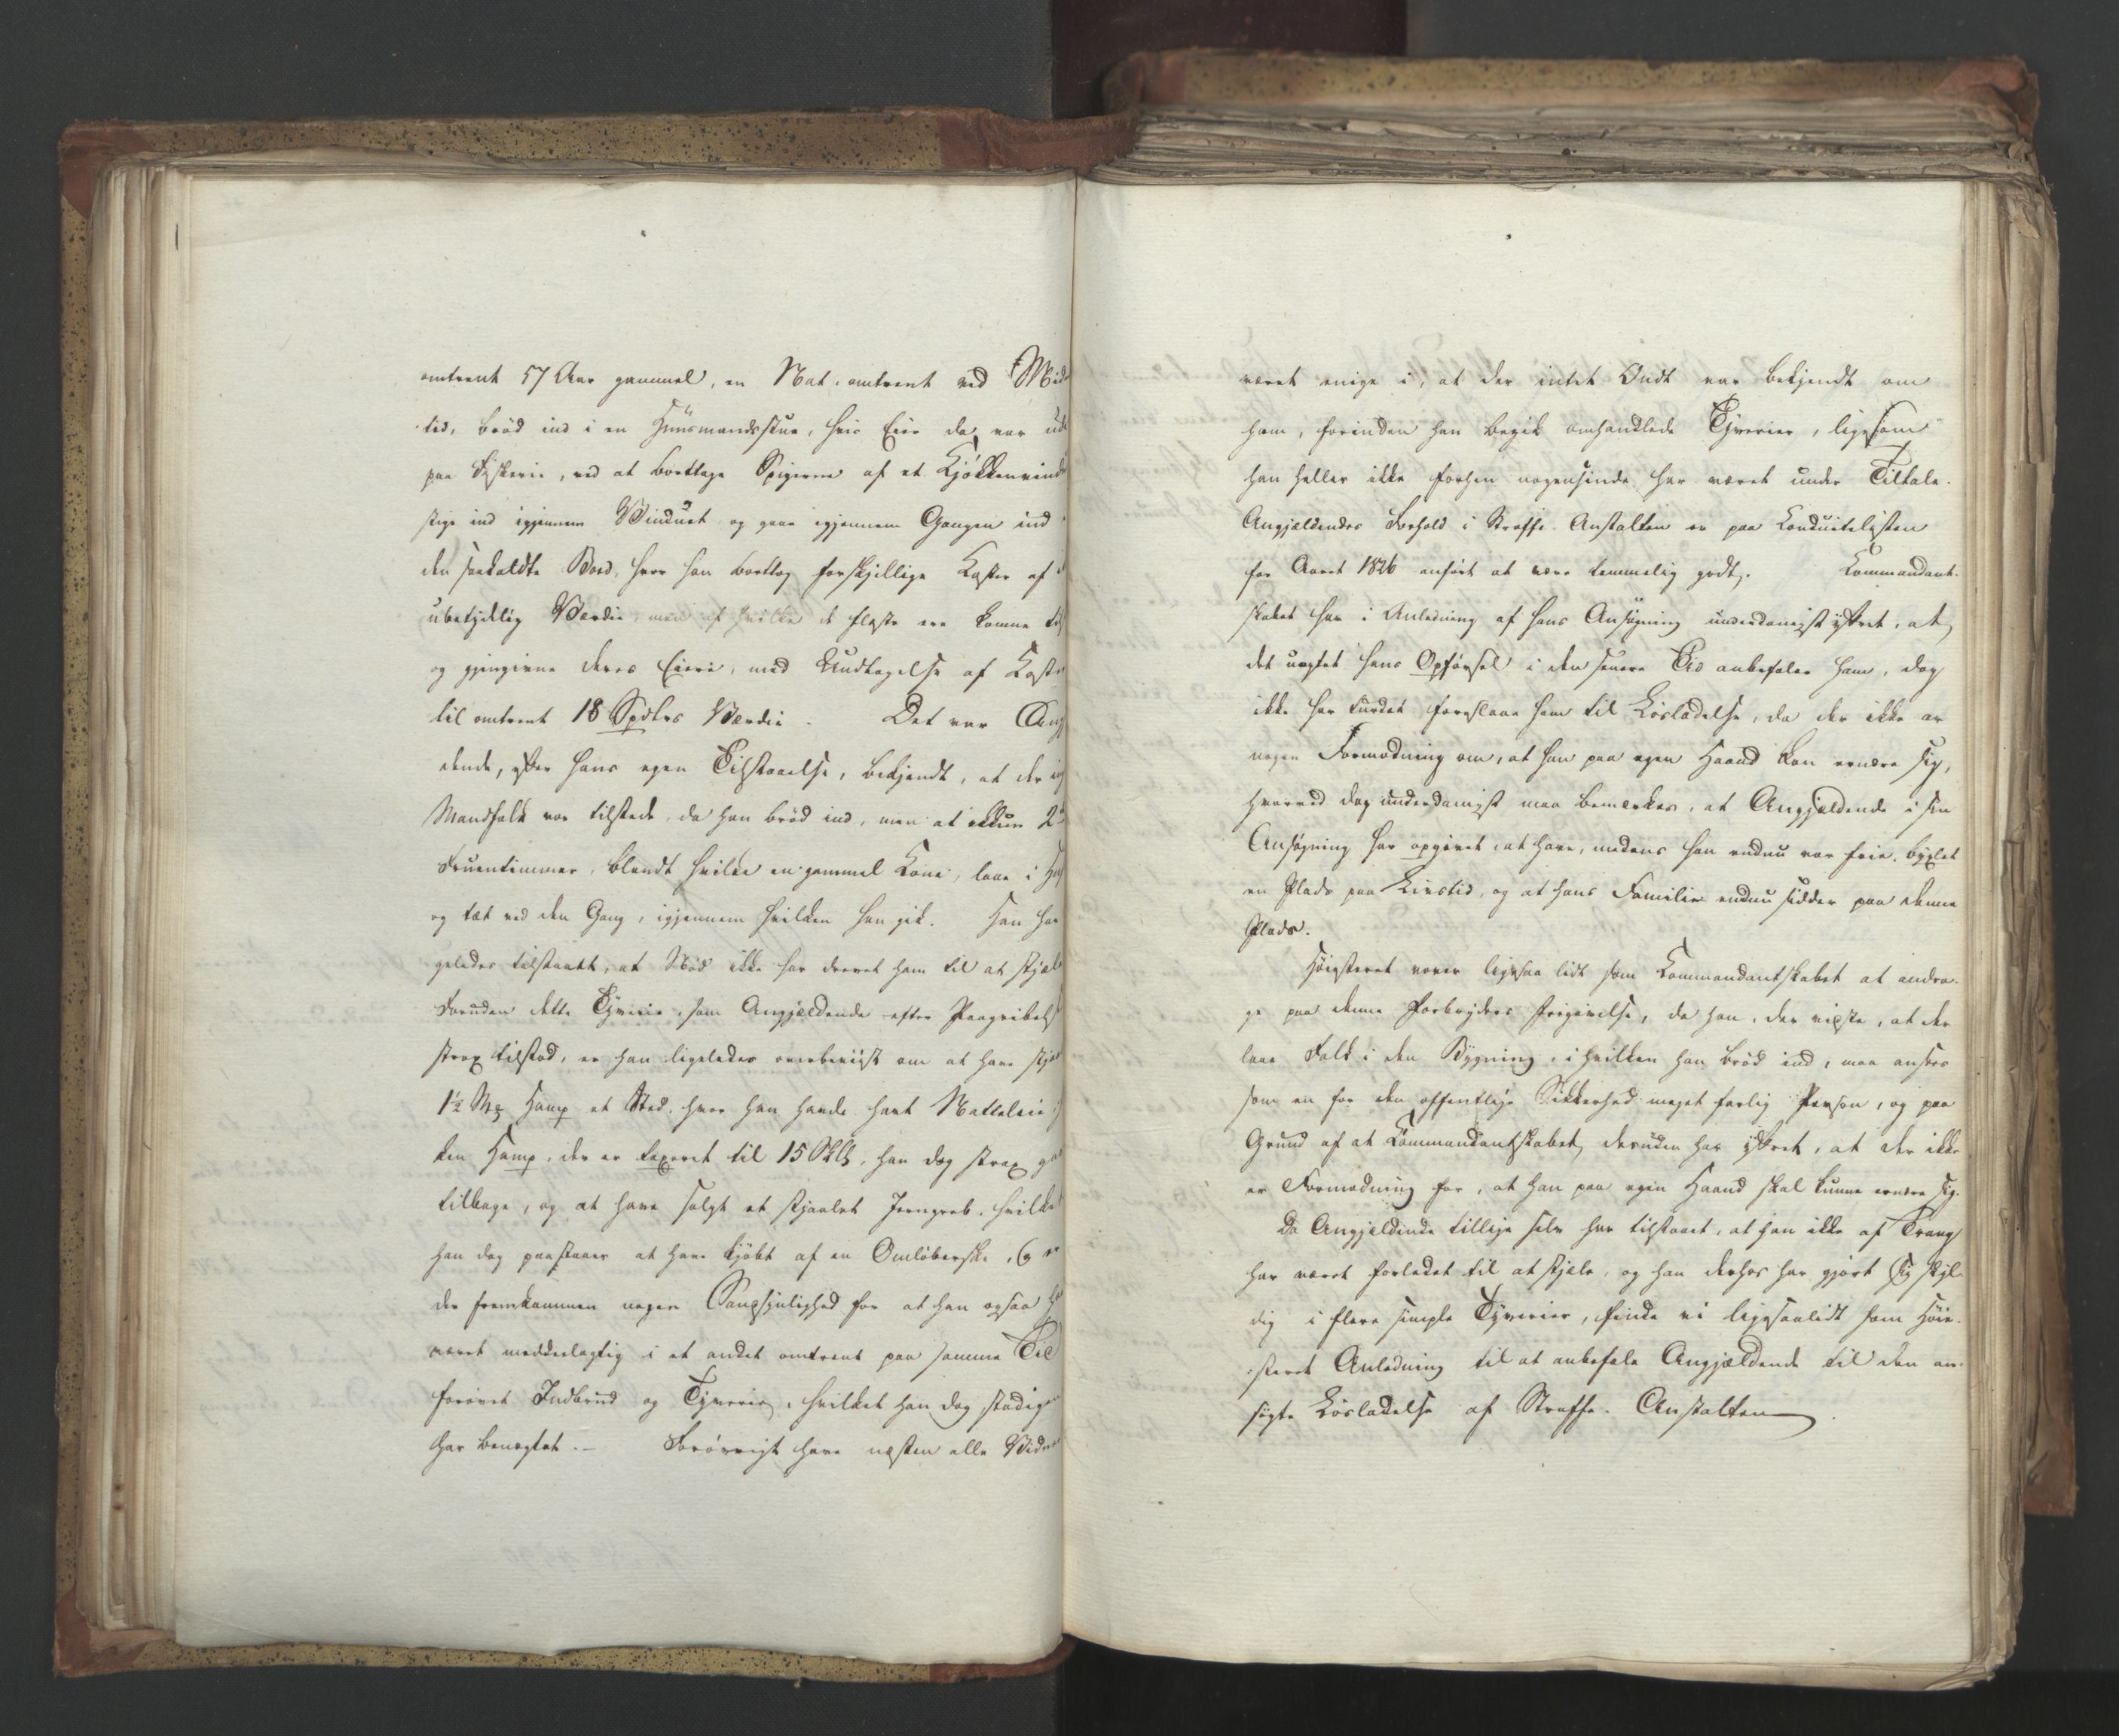 omtrent 57 Aar gammel, en Nat, omtrent ved Mid
tid, brød ind i en Huusmandsstue, hvis Eier da var ud
paa Fiskerie, ved at borttage Spigerne af et Kjøkkenvind
stige ind igjennem Vinduet og gaae igjennem Gangen ind
den saakaldte Bod, hvor han borttog forskjellige Koster af
ubetydelig Værdie, men af hvilke de fleste ere komne til
og gjengivne deres Eiere, med Undtagelse af Koste
til omtrent 18 Spdlrs Værdie. Det var Ang
dende, efter hans egen Tilstaaelse, bekjendt, at der in
Mandfolk var tilstede, da han brød ind, men at ikkun 2de
Fruentimmer, blandt hvilke en gammel Kone, laae i
og tæt ved den Gang, igjennem hvilken han gik. Han har
geledes tilstaaet, at Nød ikke har drevet ham til at stjæle
Foruden dette Tyverie, som Angjældende efter Paagribels
strax tilstod, er han ligeledes overbeviist om at have stjaa
1½ Hamp et Sted, hvor han havde havt Natteleie
ken Hamp, der er taxeret til 15 han dog strax ga
tilbage, og at have solgt et stjaalet Jerngreb, hvilket
han dog paastaaer at have kjøbt af en Omløberske, og er
der fremkommen nogen Sandsynlighed for at han ogsaa ha
været meddeelagtig i et andet omtrent paa samme Tid
forøvet Indbrud og Tyverie, hvilket han dog stadigen
har benegtet. - Forøvrigt have næsten alle Vidner
været enige i, at der intet Ondt var bekjendt om
ham, forinden han begik omhandlede Tyverier, ligesom
han heller ikke forhen nogensinde har været under Tiltale.
Angjældendes Forhold i Straffe-Anstalten er paa Conduitelisten
for Aaret 1826 anført at være temmelig godt. Kommandant-
skabet har i Anledning af hans Ansøgning underdanigst yttret, at
det uagtet hans Opførsel i den senere Tid anbefaler ham, dog
ikke har turdet foreslaae ham til Løsladelse, da der ikke er
nogen Formodning om, at han paa egen Haand kan ernære sig,
hvorved dog underdanigst maa bemærkes, at Angjældende i sin
Ansøgning har opgivet, at have, medens han endnu var frie, byxlet
en Plads paa Livstid, og at hans Familie endnu sidder paa denne
Plads.
Høiesteret vover ligesaa lidt som Kommandantskabet at andra-
ge paa denne Forbryders Frigivelse, da han, der vidste, at der
laae Folk i den Bygning, i hvilken han brød ind, maa ansees
som en for den offentlige Sikkerhed meget farlig Person, og paa
Grund af at Kommandantskabet desuden har yttret, at der ikke
er Formodning for, at han paa egen Haand skal kunne ernære sig.
Da Angjældende tillige selv har tilstaaet, at han ikke af Trang
har været forledet til at stjæle, og han derhos har gjort sig skyl-
dig i flere simple Tyverier, finde vi ligesaalidt som Høie-
steret Anledning til at anbefale Angjældende til den an-
søgte Løsladelse af Straffe-Anstalten.